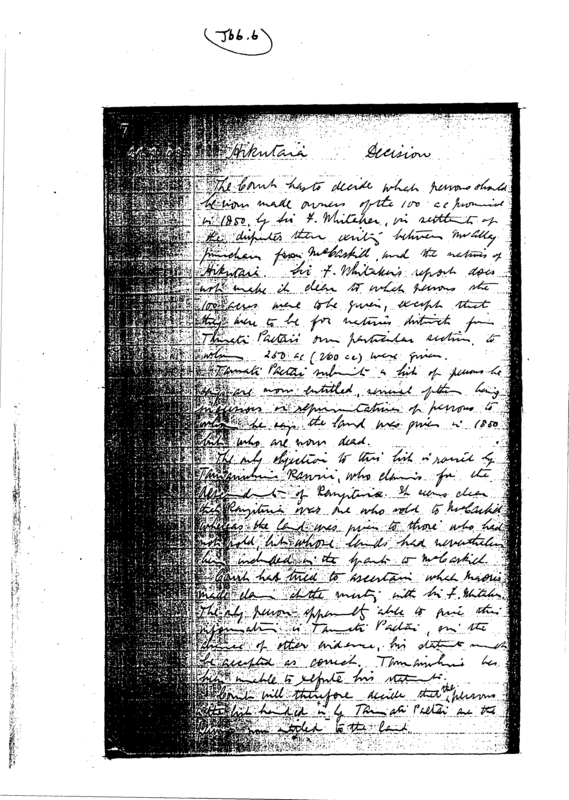 (J66.6)
7
Hikutaia Decision
The Court has to decide which persons should
be now made owners of the 100 ac promised
in 1850, by Sir F. Whitaker, in settlement of
the disputes then between
from McCaskill, and the natives of
Hikutaia. Sir F. Whitaker's report does
not make it clear to which persons the
100 acres were to be given, except that
they were to be for natives distinct from
Paetai's own particular section, to
whom 250 ac (200 ac) were given.
Tamati Paetai submits a list of persons he
says are now entitled, several of them being
successors or representatives of persons to
whom he says the land was given in 1850
but who are now dead.
The only objection to this list is raised by
Rawiri, who claims for the
descendants of Rangitaia. It seems clear
that was one who sold to McCaskill
whereas the land was given to those who had
not sold, but whose lands had nevertheless
been included in the grants to McCaskill.
Court has tried to ascertain which Maoris
made claim at the meeting with Sir F. Whitaker.
The only person apparently able to give this
information is Tamati Paetai, and in the
absence of other evidence, his statement must
be accepted as correct. has
been unable to refute his statements.
Court will therefore decide that the persons
in the list handed in by Tamati Paetai are the
now entitled to the land.